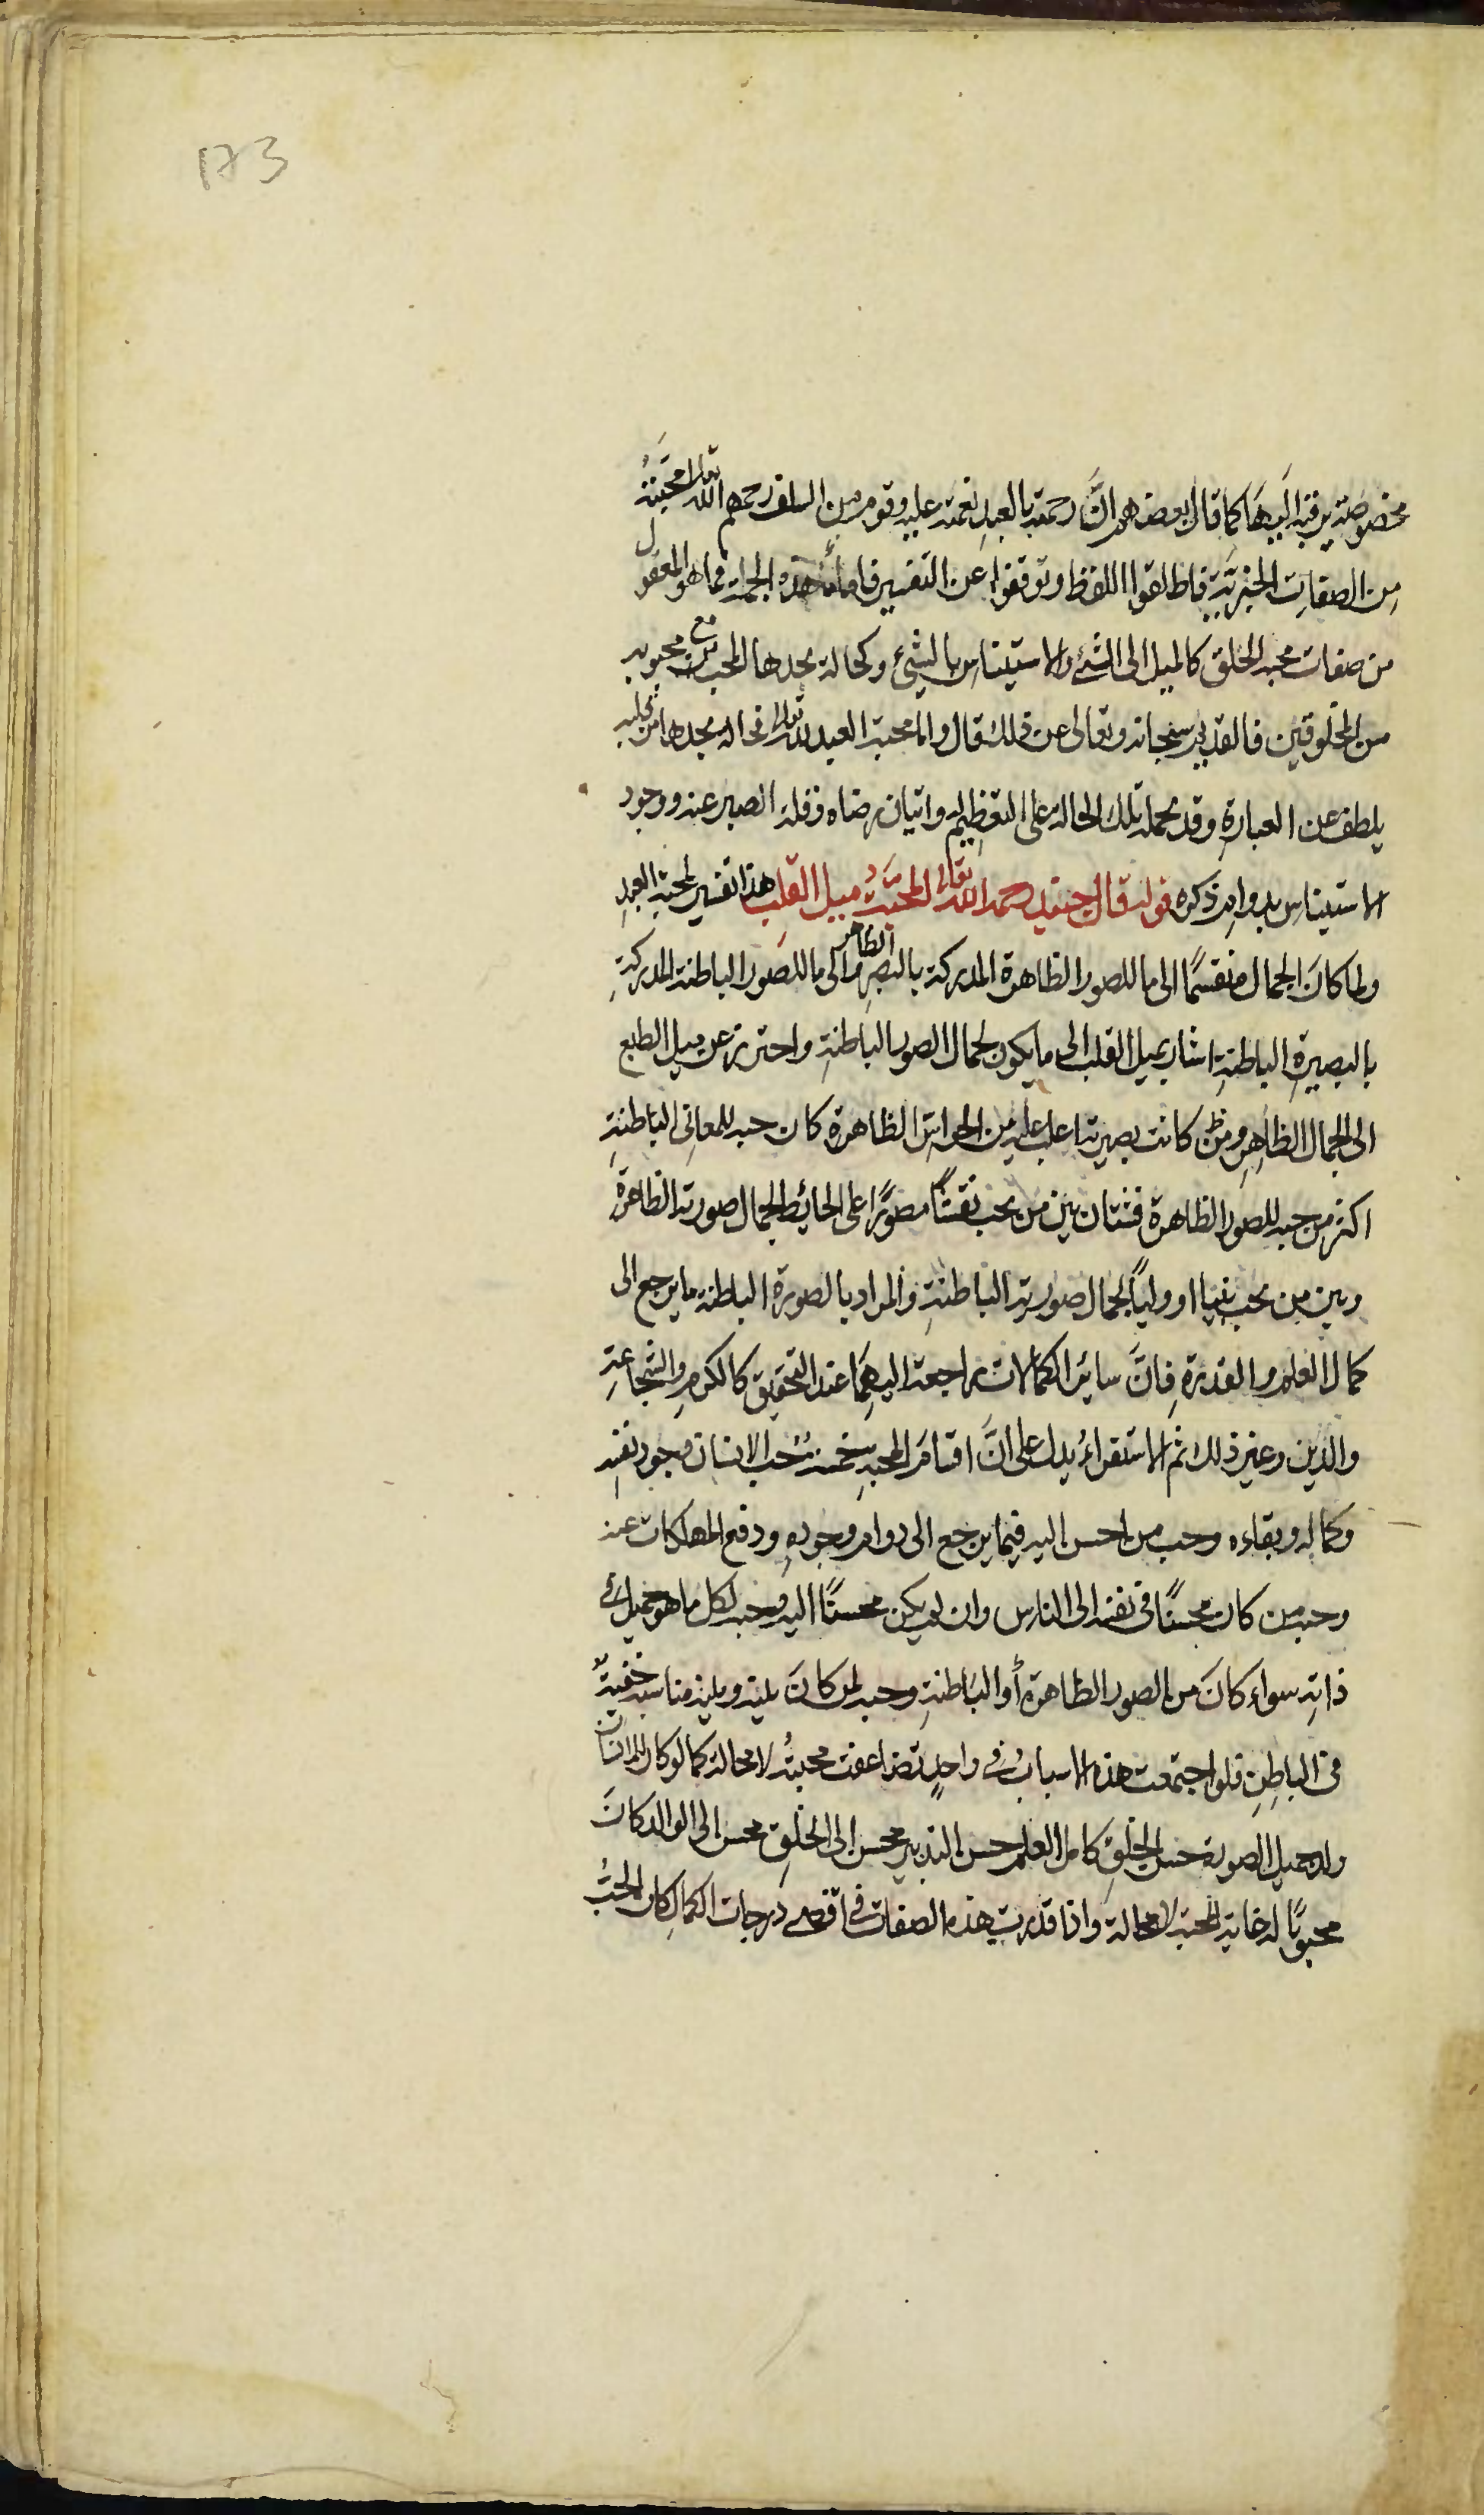 173
مخصوصة يرقبه اليها كما قال بعضهم انَّ رحمته بالعبدِ نعمته عليه وقوم من السلف رحمهم الله تعالى محبتهُ
مِن الصفات الخبريّة فاطلقوا اللفظ وتوقفوا عن التفسير فاما هذه الجملة مما هو المعقول
من صفات محبة الخلق كالميل الى الشئ والاستيناس بالشئ وكحالة يجدها المحب مع محبوبه
من المخلوقين فالقديم سبحانه وتعالى عن ذلك قال واما محبة العبد لله تعالى فحالة يجدها من قلبه
يلطف عن العبارةِ وقد يحمله تلك الحالة على التعظيم له وايثار رضاه وقلة الصبر عنه ووجود
الاستيناس بدوام ذكره قوله قال جنيد رحمه الله تعالى المحبّةُ ميل القلب هذا تفسير لمحبة العبدِ
ولما كانَ الجمال منقسمًا الى ما للصور الظاهرة المدركة بالبصرِ الظاهر والى ما للصور الباطنة المدركةِ
بالبصيرةِ الباطنةِ اشار بميل القلب الى ما يكون لجمال الصور الباطنةِ واحترز عن ميل الطبع
الى الجمال الظاهرِ ومن كانت بصيرته اغلب عليه من الحواسّ الظاهرة كان حبه للمعانى الباطنةِ
اكثر من حبه للصور الظاهرة فشتان بين من يحب نقشًا مصوّرًا على الحائط لجمال صورته الظاهرة
وبين من يحب نبيا او وليًا لجمال صورته الباطنةِ والمراد بالصورة الباطنة ما يرجع الى
كمال العلم والقدرةِ فانَّ سائر الكمالات راجعة اليهما عند التحقيق كالكرمِ والشجاعةِ
والدين وغير ذلك ثم الاستقراءُ يدل على انَّ اقسامَ المحبةِ خمسة حُب الانسان وجود نفسه
وكماله وبقاءه وحب من احسن اليه فيما يرجع الى دوام وجودهِ ودفع المهلكات عنه
وحب من كان محسنًا فى نفسه الى الناس وان لم يكن محسنًا اليه وحبه لكل ما هو جميل فى
ذاتهِ سواء كانَ من الصور الظاهرة أو الباطنةِ وحبه لمن كانَ بينه وبينه مناسبة خفيّةٌ
فى الباطِنِ فلو اجتمعت هذه الاسبابُ فى واحدٍ تضاعفت محبتهُ لا محالة كما لو كان للانسان
ولد جميل الصورة حسن الخلقِ كامل العلم حسن التدبير محسن الى الخلقِ محسن الى الوالد كانَ
محبوبًا له غاية المحبة لا محالة واذا قدرت هذه الصفات فى اقصى درجات الكمالِ كان الحبُّ